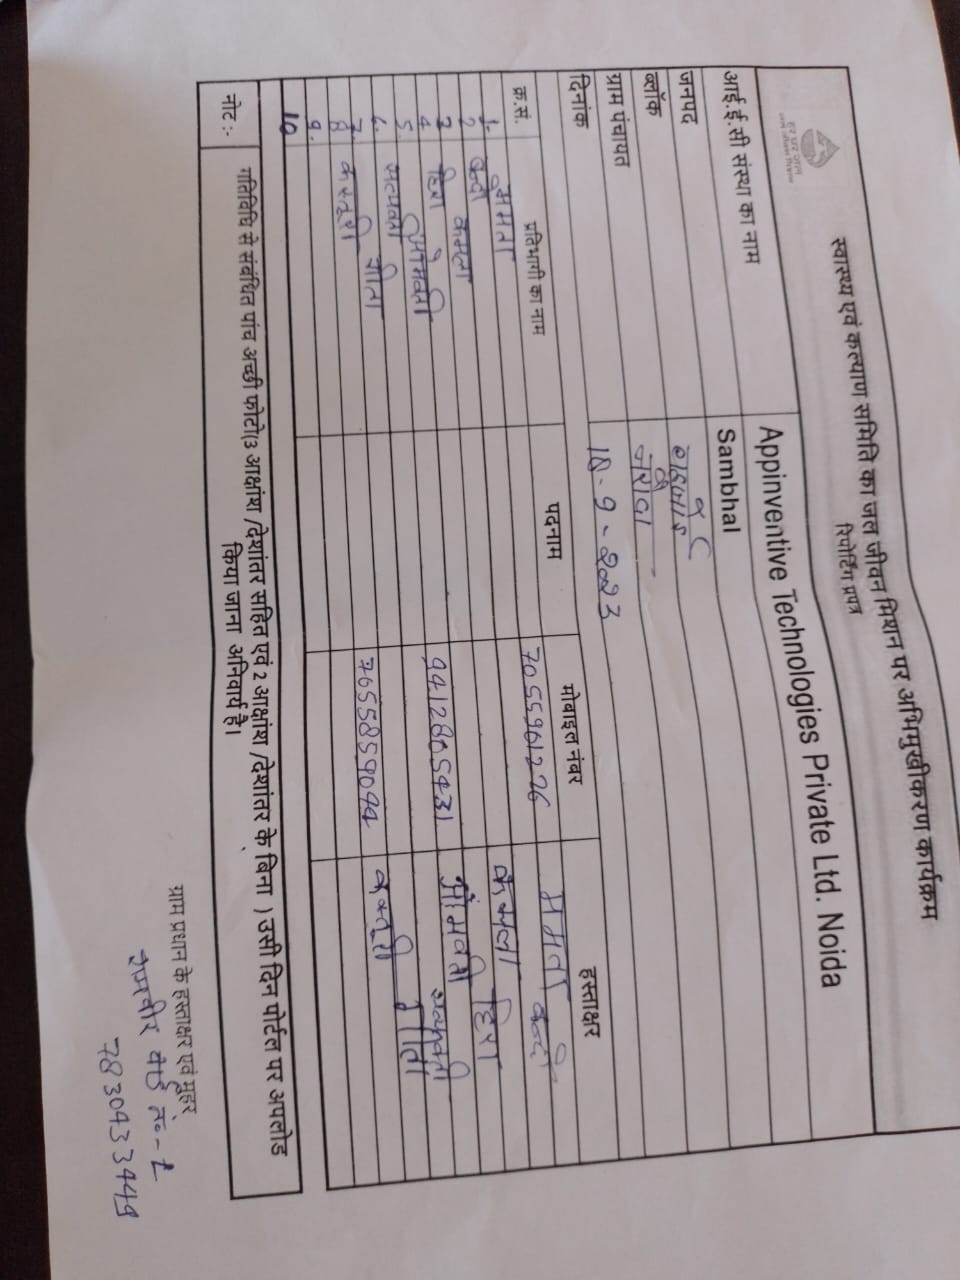 हर घर जल
जल जीवन मिशन
स्वास्थ्य एवं कल्याण समिति का जल जीवन मिशन पर अभिमुखीकरण कार्यक्रम
रिपोर्टिंग प्रपत्र
आई.ई.सी संस्था का नाम Appinventive Technologies Private Ltd. Noida
जनपद Sambhal
ब्लॉक
ग्राम पंचायत
दिनांक 18-9-2023
क्र.सं. प्रतिभागी का नाम पदनाम मोबाइल नंबर हस्ताक्षर
1. ममता 7055961226 ममता
2
3 कमला कमला
4 हिरा हिरा
5. 9412805431
6. सत्यवती सत्यवती
7. गीता गीता
8 कस्तूरी 7655859099 कस्तूरी
9.
10
नोट :- गतिविधि से संबंधित पांच अच्छी फोटो(3 आक्षांश /देशांतर सहित एवं 2 आक्षांश /देशांतर के बिना ) उसी दिन पोर्टल पर अपलोड
किया जाना अनिवार्य है।
ग्राम प्रधान के हस्ताक्षर एवं मुहर
रामवीर वार्ड नं०-1
7830933449